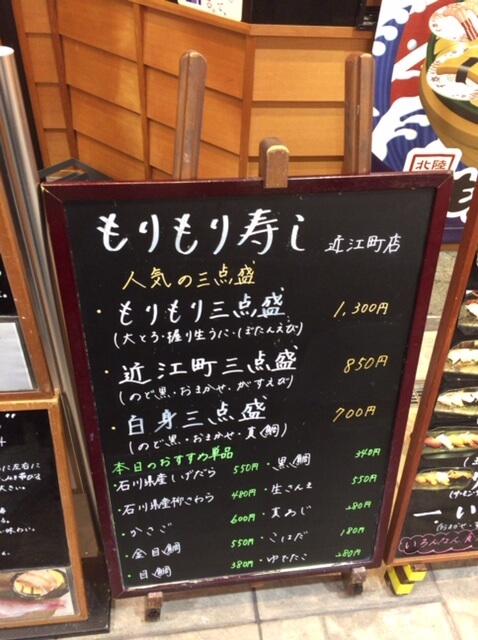 もりもり寿し 近江町店
人気の三点盛
・もりもり三点盛 1,300円
(大とろ・握り生うに・ぼたんえび)
・近江町三点盛 850円
(のど黒・おまかせ・がすえび)
・白身三点盛 700円
(のど黒・おまかせ・真鯛)
本日のおすすめ単品
・石川県産しげだら 550円
・石川県産柳さわら 480円
・かさご 600円
・金目鯛 550円
・目鯛 380円
・黒鯛 340円
・生さんま 550円
・真あじ 280円
・こはだ 180円
・ゆでたこ 280円
北陸